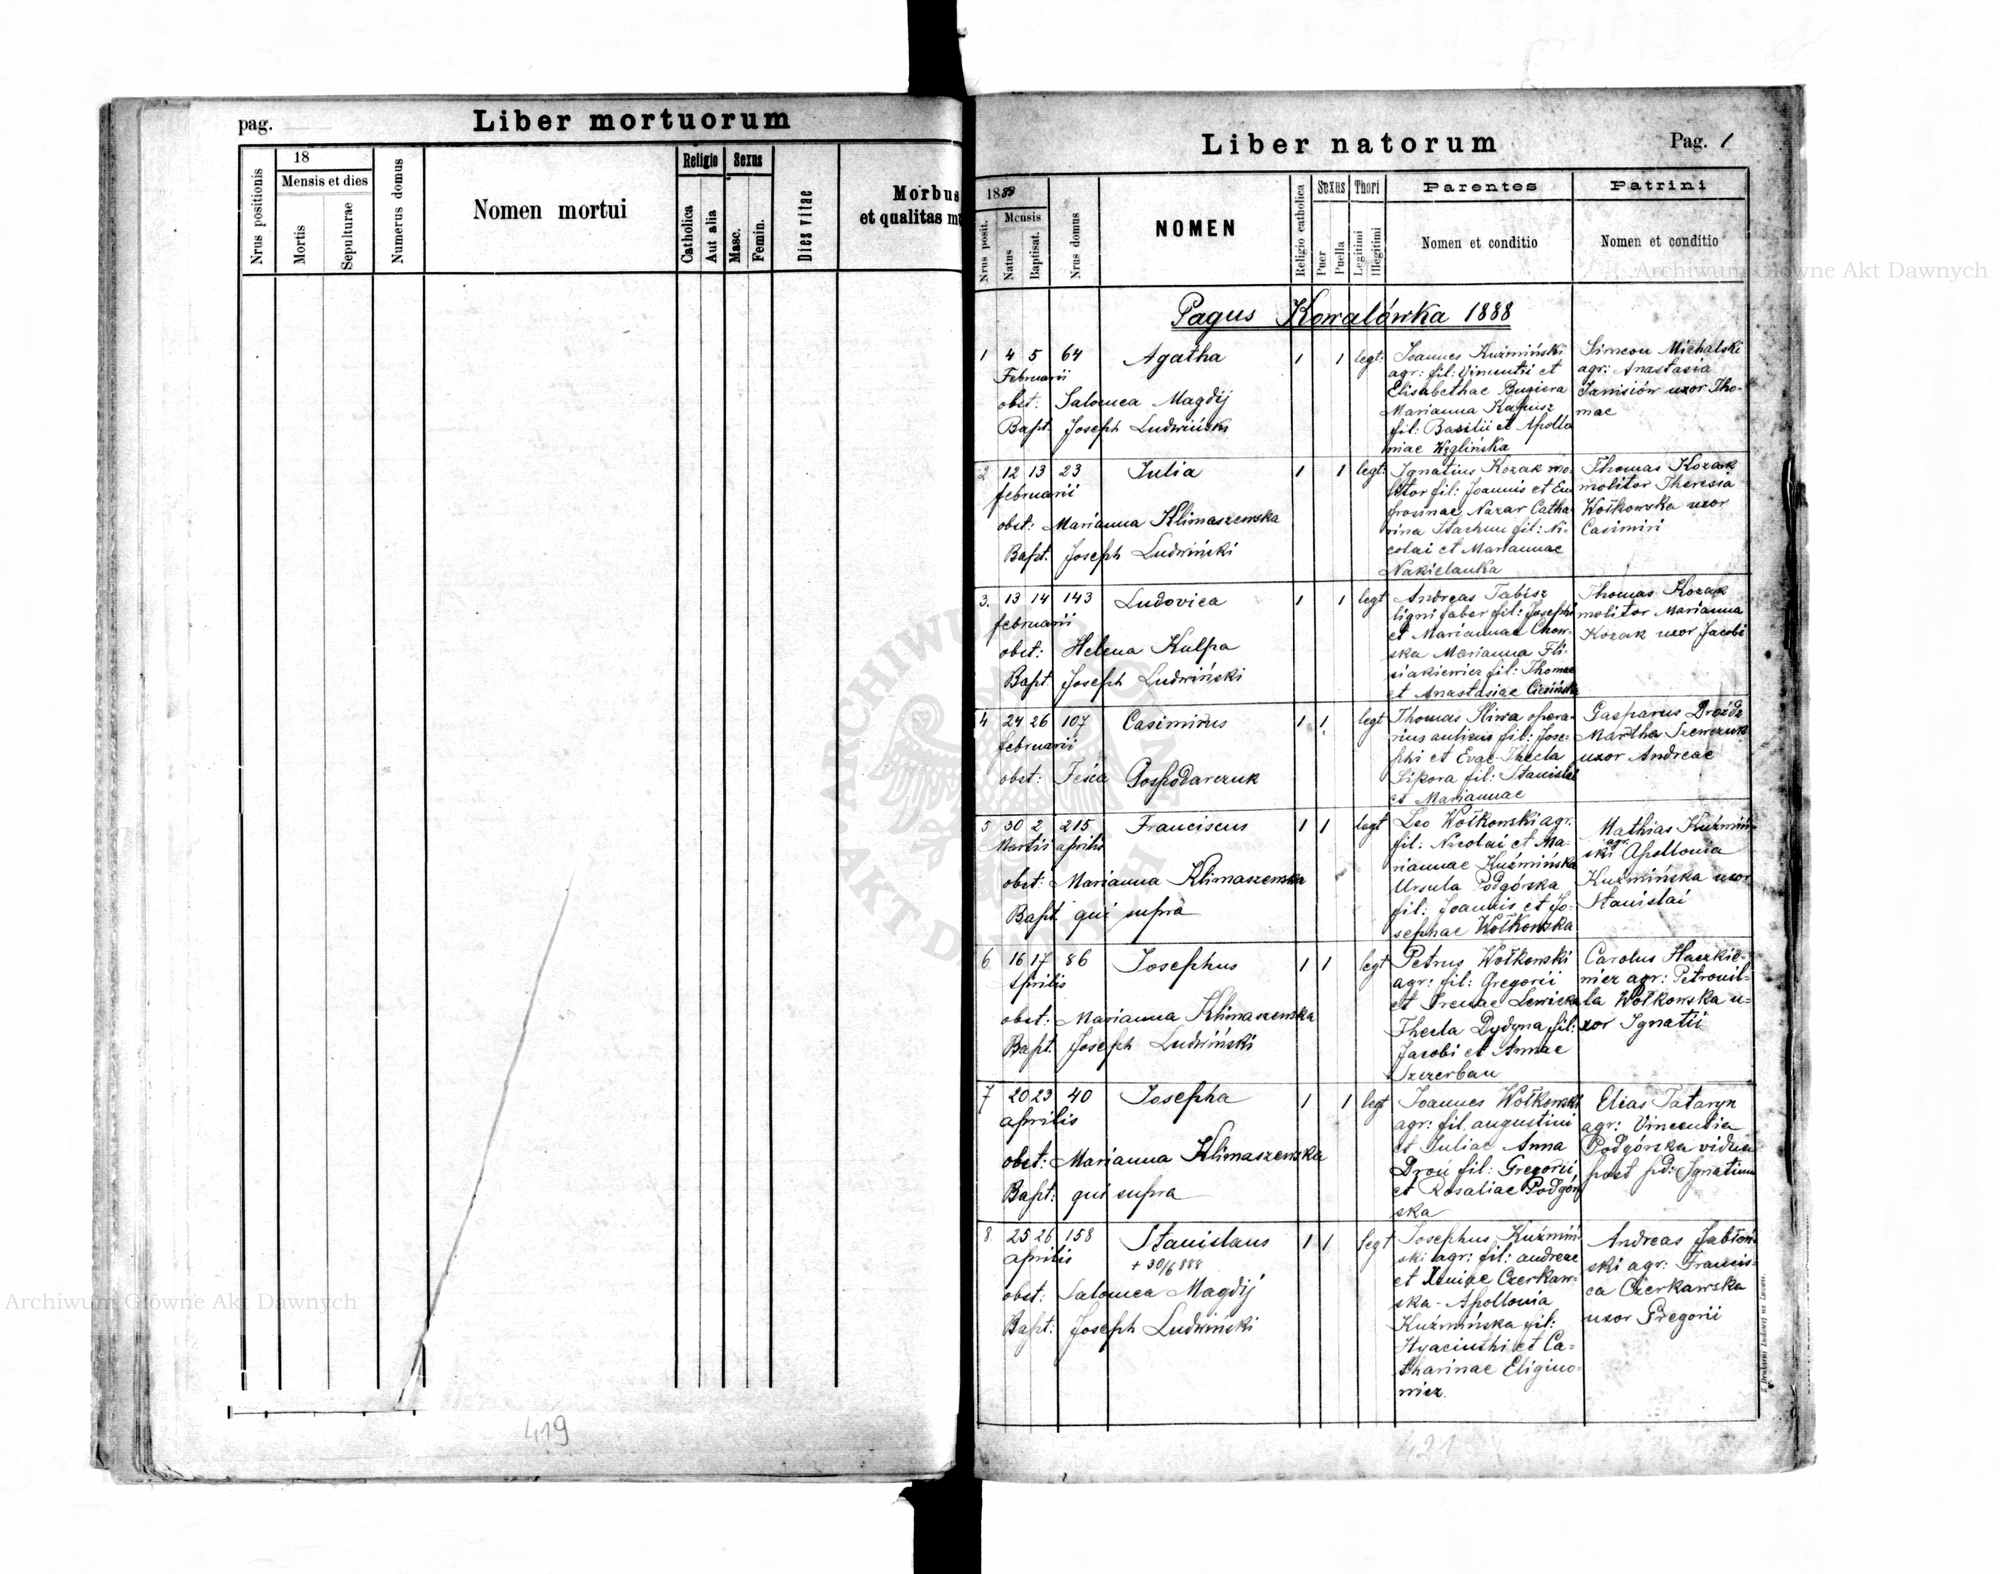 pag.
Liber mortuorum
Nrus positionis
18
Mensis et dies
Mortis
Sepulturae
Numerus domus
Nomen mortui
Religio
Catholica
Aut alia
Sexus
Masc.
Femin.
Dies vitae
Morbus
et qualitas m
419
Liber natorum
Pag. 1
1888
Nrus posit.
Mensis
Natus
Baptisat.
Nrus domus
NOMEN
Religio catholica
Sexus
Puer
Puella
Thori
Legitimi
Illegitimi
Parentes
Nomen et conditio
Patrini
Nomen et conditio
Pagus Kowalówka 1888
1 4 5 64 Agatha 1 1 legt:
Februarii
obst: Salomea Magdij
Bapt: Joseph Ludwiński
Joannes Kuźmiński
agr: fil: Vincentii et
Elisabethae Bugiera
Marianna Kapusz
fil: Basilii et Apollo
niae Węglińska
Simeon Michalski
agr: Anastasia
Janisiów uxor Tho-
mae
2 12 13 23 Julia 1 1 legt:
februarii
obst: Marianna Klimaszewska
Bapt: Joseph Ludwiński
Ignatius Kozak mo-
litor fil: Joannis et Eu
frosinae Nazar Catha
rina Stachum fil: Ni-
colai et Mariannae
Nakielanka
Thomas Kozak
molitor Theresia
Wołkowska uxor
Casimiri
3. 13 14 143 Ludovica 1 1 legt
februarii
obst: Helena Kulpa
Bapt Joseph Ludwiński
Andreas Tabisz
ligni faber fil: Josephi
et Mariannae Chow-
ska Marianna Fli-
siakiewicz fil: Thomae
et Anastasiae Ciesińska
Thomas Kozak
molitor Marianna
Kozak uxor Jacobi
4 24 26 107 Casimirus 1 1 legt
februarii
obst: Tesia Gospodarczuk
Thomas Sliwa opera-
rius aulicus fil: Jose-
phi et Evae Thecla
Sikora fil: Stanislai
et Mariannae
Gasparus Drozdz
Martha Szewczuk
uxor Andreae
5 30 2 215 Franciscus 1 1 legt
Martii aprilis
obst: Marianna Klimaszewska
Bapt qui supra
Leo Wołkowski agr.
fil: Nicolai et Ma-
riannae Kuźmińska
Ursula Podgórska
fil: Joannis et Jo-
sephae Wołkowska
Mathias Kuźmiń-
ski agr. Apollonia
Kuźmińska uxor
Stanislai
6 16 17 86 Josephus 1 1 legt
Aprilis
obst: Marianna Klimaszewska
Bapt: Joseph Ludwiński
Petrus Wołkowski
agr: fil: Gregorii
et Irenae Lewicka
Thecla Dydyna fil:
Jacobi et Annae
Szczerban
Carolus Haczkie-
wicz agr: Petronil-
la Wołkowska u-
xor Ignatii
7 20 23 40 Josepha 1 1 legt
aprilis
obst: Marianna Klimaszewska
Bapt: qui supra
Joannes Wołkowski
agr: fil. augustini
et Juliae Anna
Dzoń fil: Gregorii
et Rosaliae Podgór
ska
Elias Tataryn
agr: Vincentia
Podgórska vidua
post pd: Ignatium
8. 25 26 158 Stanislaus 1 1 legt
aprilis + 30/6 888
obst: Salomea Magdij
Bapt: Joseph Ludwiński
Josephus Kuźmiń
ski agr: fil: andreae
et Xeniae Czerkaw-
ska - Apollonia
Kuźmińska fil:
Hyacinthi et Ca-
tharinae Eligino-
wicz.
Andreas Jabłoń-
ski agr: Francis-
ca Czerkawska
uxor Gregorii
Z Drukarni Ludowej we Lwowie.
421
Archiwum Główne Akt Dawnych
Archiwum Główne Akt Dawnych
ARCHIWUM GŁÓWNE AKT DAWNYCH